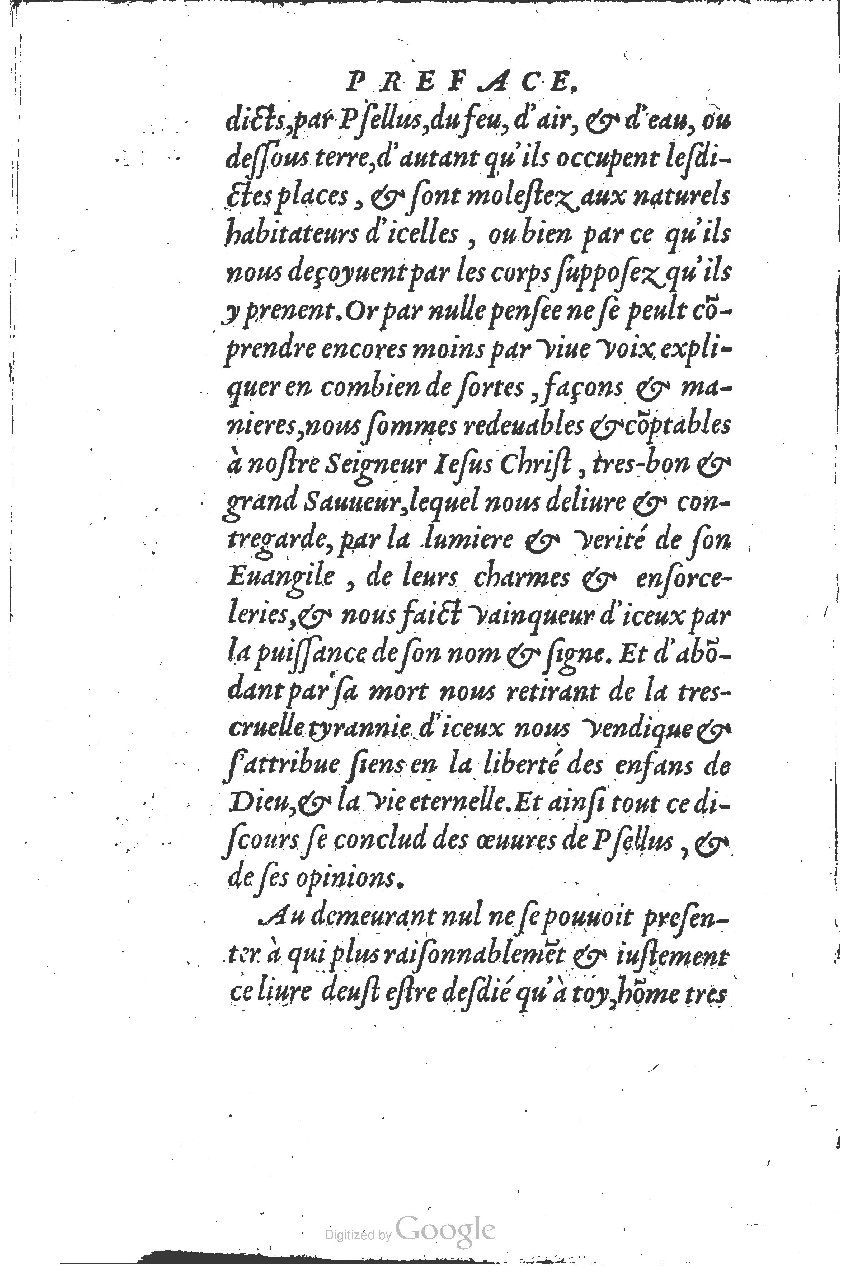 PREFACE.
dicts, par Pſellus, du feu, d'air, & d'eau, ou
deſſous terre, d'autant qu'ils occupent leſdi-
ctes places, & ſont moleſtez aux naturels
habitateurs d'icelles, ou bien par ce qu'ils
nous deçoyuent par les corps ſuppoſez qu'ils
y prenent. Or par nulle penſee ne ſe peult cõ-
prendre encores moins par viue voix expli-
quer en combien de ſortes, façons & ma-
nieres, nous ſommes redeuables & cõptables
à noſtre Seigneur Ieſus Chriſt, tres-bon &
grand Sauueur, lequel nous deliure & con-
tregarde, par la lumiere & verité de ſon
Euangile, de leurs charmes & enſorce-
leries, & nous faict vainqueur d'iceux par
la puiſſance de ſon nom & ſigne. Et d'abõ-
dant par ſa mort nous retirant de la tres-
cruelle tyrannie d'iceux nous vendique &
ſ'attribue ſiens en la liberté des enfans de
Dieu, & la vie eternelle. Et ainſi tout ce di-
ſcours ſe conclud des œuures de Pſellus, &
de ſes opinions.
Au demeurant nul ne ſe pouuoit preſen-
ter à qui plus raiſonnablemẽt & iuſtement
ce liure deuſt eſtre deſdié qu'à toy, hõme tres
Digitized by Google